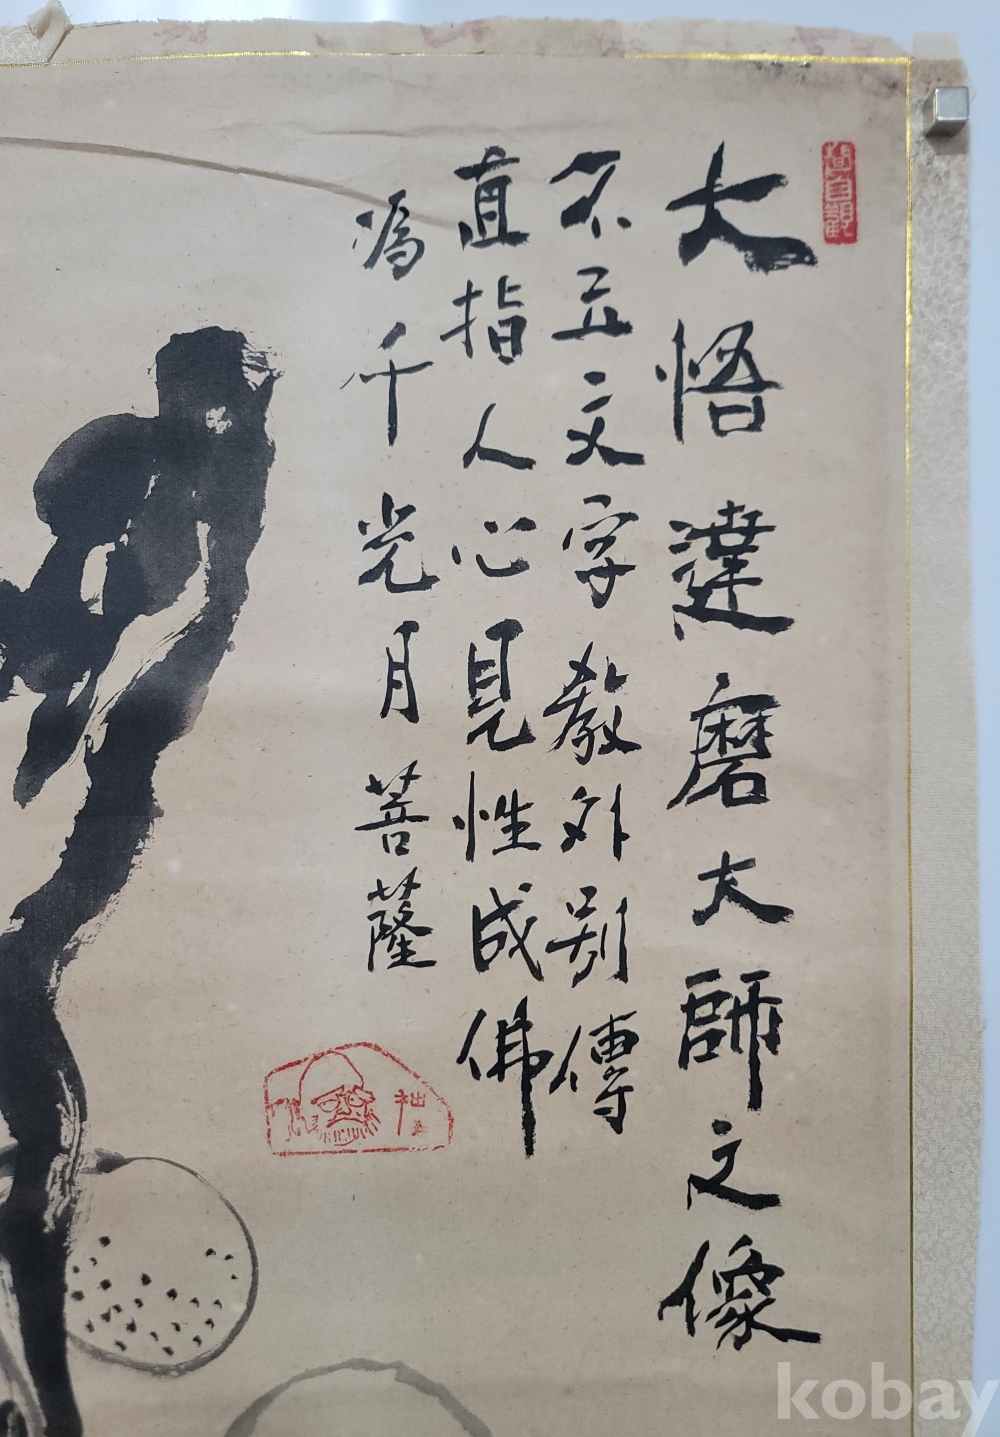 大悟達磨大師之像
不立文字教外別傳
直指人心見性成佛
為千光月菩薩
kobay